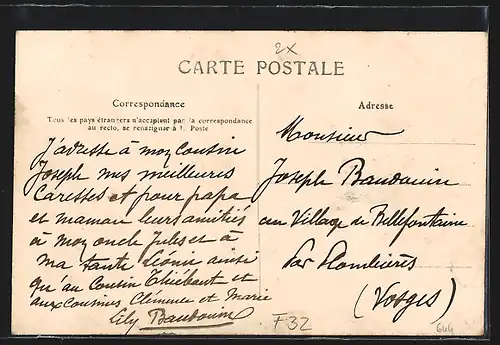 2x
CARTE POSTALE
Correspondance
Tous les pays étrangers n'acceptent pas la correspondance
au recto, se renseigner à la Poste
J'adresse à mon Cousin
Joseph mes meilleures
Caresses et pour papa
et maman leurs amitiés
à mon oncle Jules et à
ma tante Léonie ainsi
qu'au Cousin Thiébaut et
aux cousines Clémence et Marie
Lily Baudouin
Adresse
Monsieur
Joseph Baudouin
au Village de Bellefontaine
Par Plombières
(Vosges)
F32
644